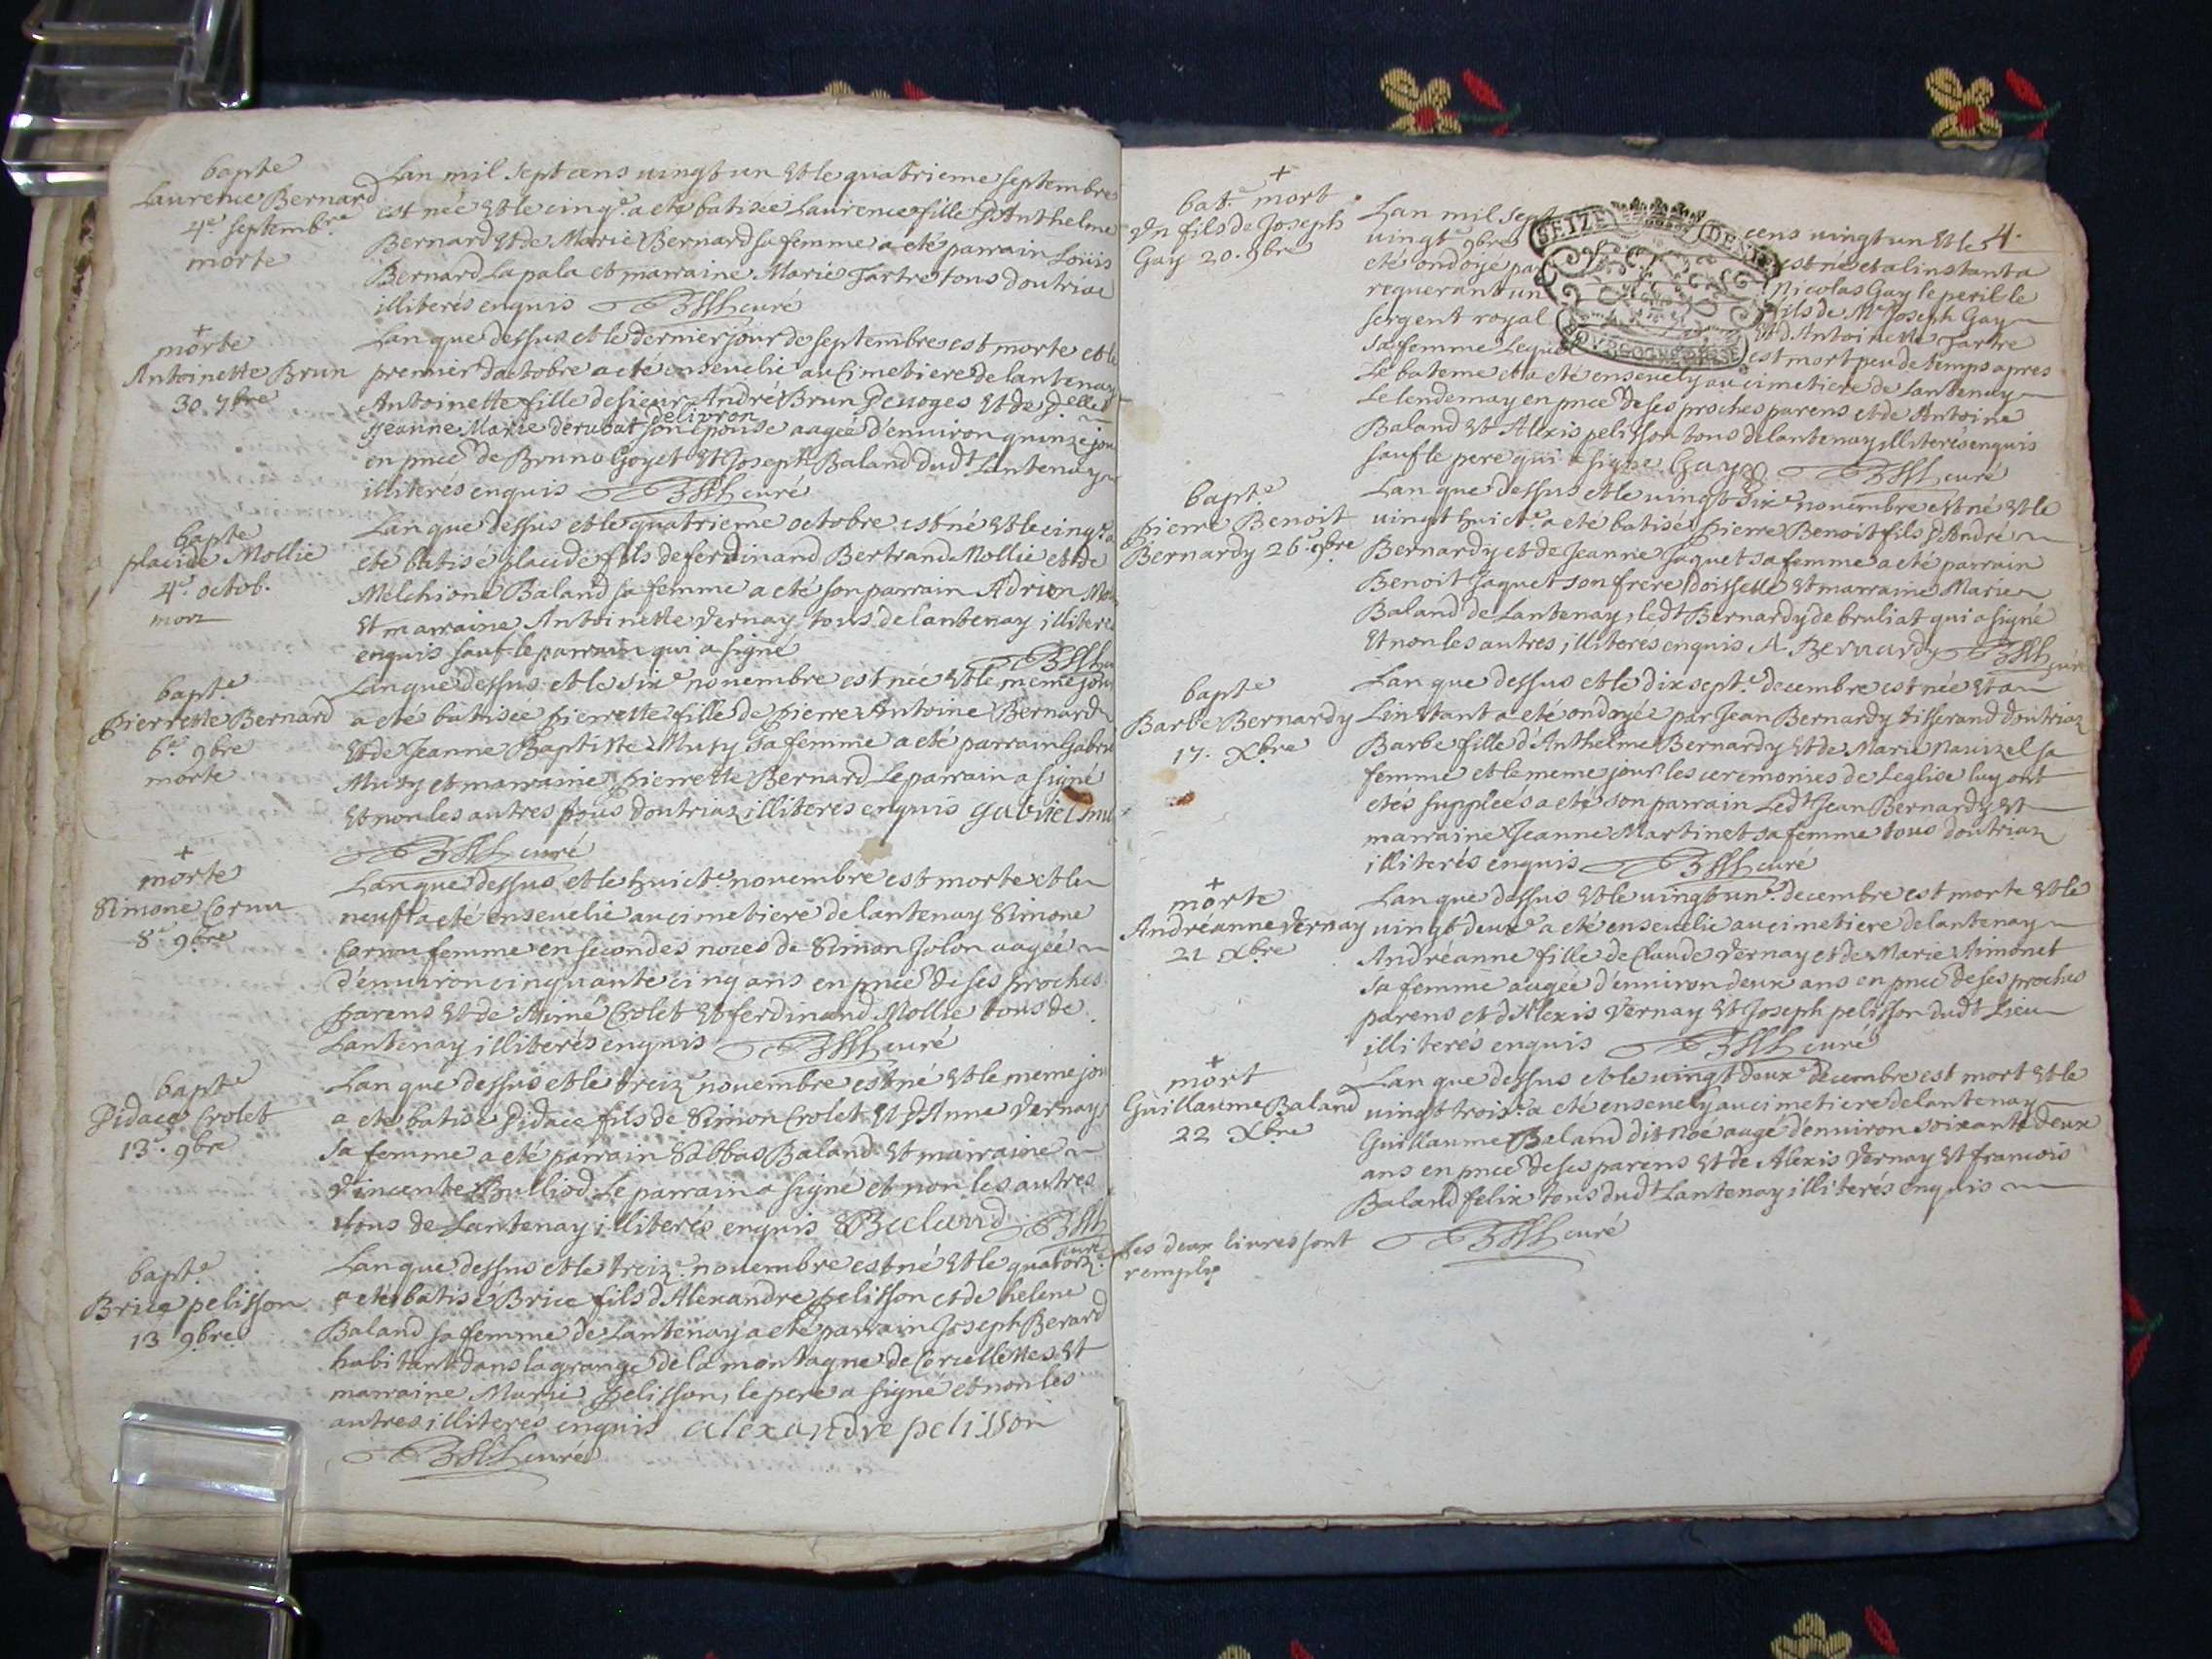 bapte
Laurence Bernard
4e septembre
morte
Lan mil sept cens uingt un et le quatrieme septembre
est née et le cinqe a eté batisée Laurence fille d'Anthelme
Bernard et de Marie Bernard sa femme a eté parrain Loüis
Bernard La pala et marraine Marie Tartre tous doutriaz
illiterés enquis curé
+
morte
Antoinette Brun
30 7bre
Lan que dessus et le dernier jour de septembre est morte et le
premier doctobre a eté enseuelie au Cimetiere de lantenay
Antoinette fille de sieur André Brun De uoges et de delle
delivron
Jeanne Marie derubat son epouse aagée d'enuiron quinze jou
en pnce de Bruno Goyet et Joseph Baland dudt Lantenay
illiterés enquis curé
bapte
placide Mollie
4e octob.
mort
Lan que dessus et le quatrieme octobre est né et le cinqe a
eté batisé placide fils de ferdinand Bertrand Mollie et de
Melchione Baland sa femme a eté son parrain Adrien Mo
et marraine Antoinette Vernay tous de lantenay illitere
enquis sauf le parrain qui a signé
bapte
Pierrette Bernard
6e 9bre
morte
Lan que dessus et le sixe nouembre est née et le meme jou
a eté batisée pierrette fille de pierre Antoine Bernard
et de Jeanne Baptiste Musy sa femme a eté parrain Gabri
Musy et marraine pierrette Bernard Le parrain a signé
et non les autres tous doutriaz illiterés enquis gabriel mu
curé
+
morte
Simone Cornu
8e 9bre
Lan que dessus et le huicte nouembre est morte et le
neuf a eté enseuelie au cimetiere de lantenay Simone
Cornu femme en secondes noces de Simon Jolon aagée
d'enuiron cinquante cinq ans en pnce de ses proches
parens et de Aimé Crolet et ferdinand Mollie tous de
Lantenay illiterés enquis curé
bapte
Didace Crolet
13e 9bre
Lan que dessus et le treize nouembre est né et le meme jou
a eté batisé Didace fils de Simon Crolet et d'Anne Vernay
sa femme a eté parrain Sabbas Baland et marraine
Vincente Bulliod Le parrain a signé et non les autres
tous de Lantenay illiterés enquis SBaland
curé
bapte
Brice pelisson
13 9bre
Lan que dessus et le treize nouembre est né et le quatorze
a eté batisé Brice fils d'Alexandre pelisson et de helene
Baland sa femme de Lantenay a eté parrain Joseph Berard
habitant dans la grange de la montagne de Corcellettes et
marraine Marie pelisson, le pere a signé et non les
autres illiterés enquis alexandre pelisson
curé
+
bate mort
Vn fils de Joseph
Gay 20. 9bre
SEIZE DEN
BOVRGOGNE BRESSE
4.
Lan mil sept cens uingt un et le
uingte 9bre est né et a linstant a
eté ondoyé par Nicolas Gay le peril le
requerant un fils de Me Joseph Gay
sergent royal et d'Antoinette Tartre
sa femme Lequel est mort peu de temps apres
Le bateme et a eté enseuely au cimetiere de Lantenay
Le lendemay en pnce de ses proches parens et de Antoine
Baland et Alexis pelisson tous de lantenay illiterés enquis
sauf le pere qui a signe Gay curé
bapte
pierre Benoit
Bernardy 26e 9bre
Lan que dessus et le uingt sixe nouembre est né et le
uingt huicte a eté batisé pierre Benoit fils d'André
Bernardy et de Jeanne Jaquet sa femme a eté parrain
Benoit Jaquet son frere doisselle et marraine Marie
Baland de Lantenay, ledt Bernardy de bruliat qui a signé
et non les autres, illiteres enquis A Bernardy curé
bapte
Barbe Bernardy
17. Xbre
Lan que dessus et le dix septe decembre est née et a
Linstant a eté ondoyée par Jean Bernardy tisserand doutriaz
Barbe fille d'Anthelme Bernardy et de Marie sa
femme et le meme jour les ceremonies de Leglise luy ont
etés supplées a eté son parrain Ledt Jean Bernardy et
marraine Jeanne Martinet sa femme tous doutriaz
illiterés enquis curé
+
morte
Andréanne Vernay
21 Xbre
Lan que dessus et le uingt une decembre est morte et le
uingt deuxe a eté enseuelie au cimetiere de lantenay
Andréanne fille de Claude Vernay et de Marie Aimonet
sa femme aagée d'enuiron deux ans en pnce de ses proches
parens et d'Alexis Vernay et Joseph pelisson dudt Lieu
illiterés enquis curé
+
mort
Guillaume Baland
22 Xbre
Lan que dessus et le uingt deuxe decembre est mort et le
uingt troise a eté enseuely au cimetiere de lantenay
Guillaume Baland dit Noé aagé d'enuiron soixante deux
ans en pnce de ses parens et de Alexis Vernay et francois
Baland felix tous dudt Lantenay illiterés enquis
curé
Les deux liures sont
remplis